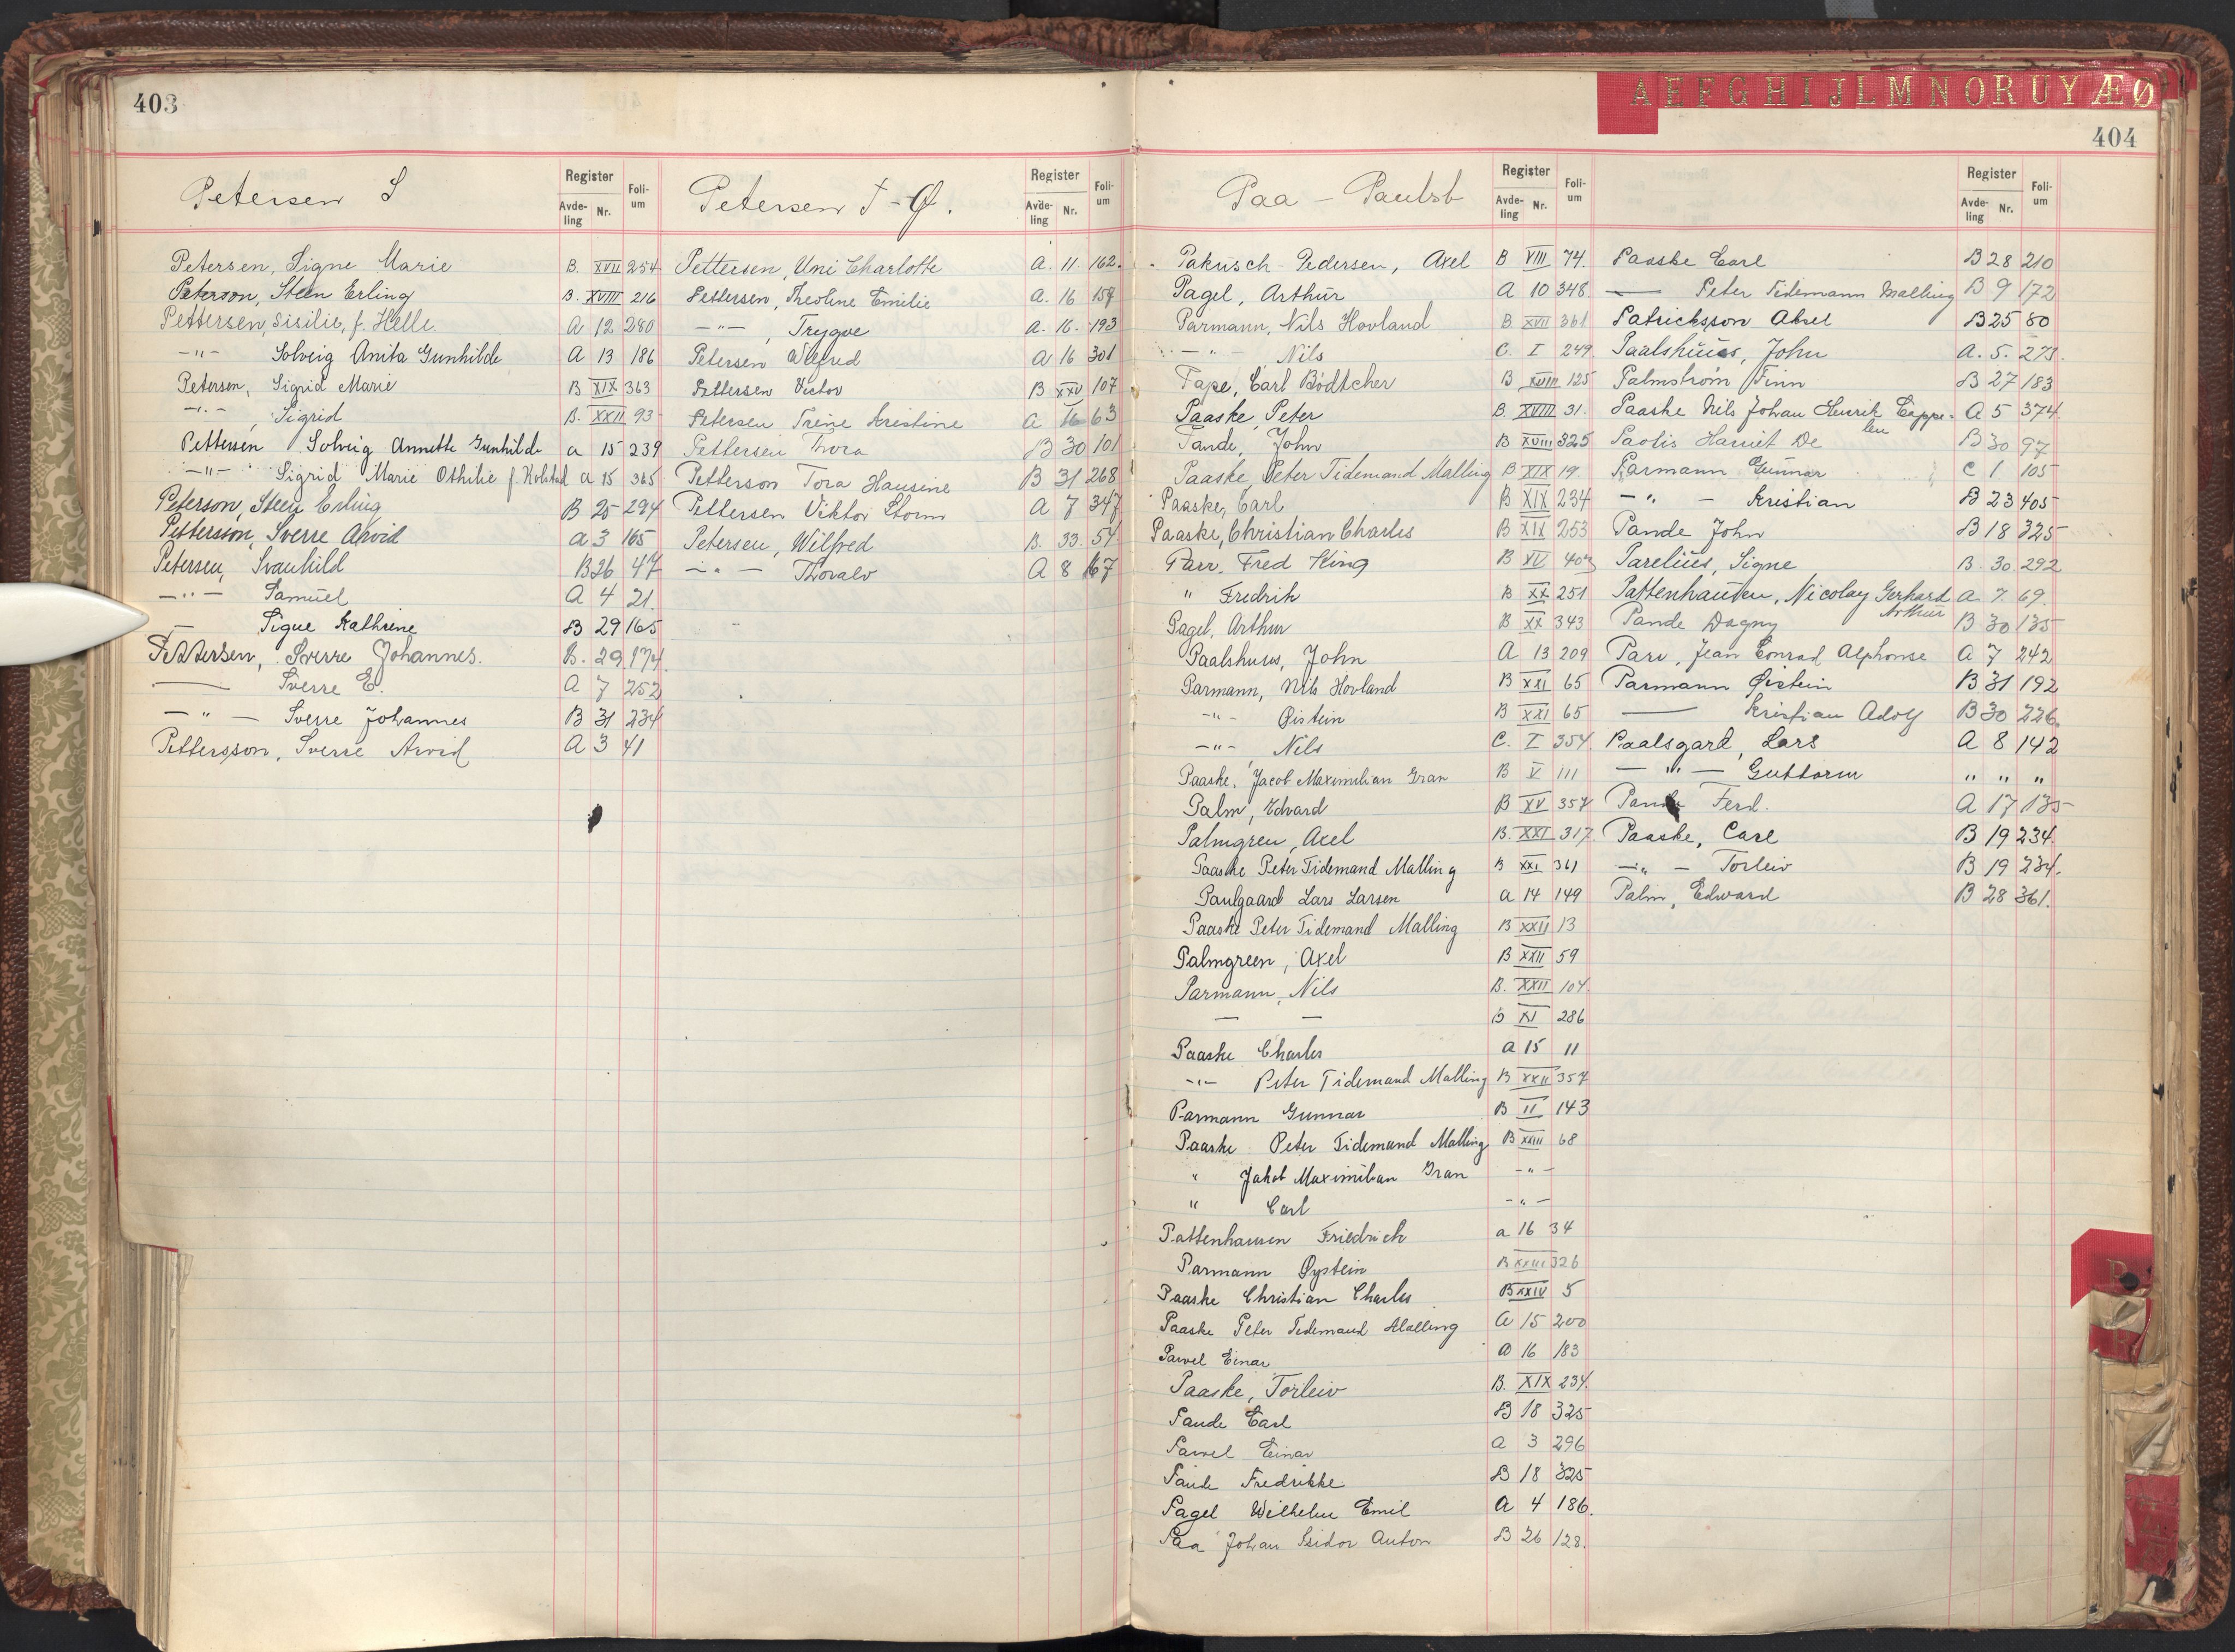 403
Petersen S
Register
Avde-ling Nr. Foli-um
Petersen, Signe Marie B. XVII 254
Peterson, Steen Erling B. XVIII 216
Pettersen, Sisilie, f. Helle. A 12 280
-"- Solveig Anita Gunhilde A 13 186
Petersen, Sigrid Marie B XIX 363
-"- , Sigrid B. XXII 93
Pettersen Solveig Annette Gunhilde a 15 239
-"- Sigrid Marie Othilie f. Holstad a 15 365
Peterson, Steen Erling B 25 294
Pettersson, Sverre Arvid a 3 165
Petersen, Svanhild B26 47
-"- Samuel A 4 21.
— Signe Kathrine B 29 165
Pettersen, Sverre Johannes. B. 29 174.
— Sverre E. A 7 252
-"- Sverre Johannes B 31 234
Pettersson, Sverre Arvid A 3 41
Petersen T-Ø.
Register
Avde-ling Nr. Foli-um
Pettersen, Uni Charlotte A. 11. 162.
Pettersen, Theoline Emilie A. 16 157
-"- , Trygve A. 16. 193
Petersen Wilfred A 16 301
Pettersen Victor B XXV 107
Petersen Trine Kristine A 16 63
Pettersen Thora B 30 101
Petterson Tora Hansine B 31 268
Pettersen Viktor Storm A 7 347
Petersen, Wilfred B. 33. 54
-"- Thoralv A 8 167
A E F G H I J L M N O R U Y Æ Ø
404
Paa - Paulsb
Register
Avde-ling Nr. Foli-um
Pakusch-Pedersen, Axel B VIII 74.
Pagel, Arthur A 10 348
Parmann, Nils Hovland B XVII 361
-"- Nils C. I 249
Pape, Carl Bödtcher B XVIII 125
Paaske, Peter B. XVIII 31.
Pande, John B XVIII 325
Paaske, Peter Tidemand Malling B XIX 19.
Paaske, Carl B XIX 234
Paaske, Christian Charles B XIX 253
Parr, Fred King B XV 403
" Fredrik B XX 251
Pagel, Arthur B XX 343
Paalshuus, John A 13 209
Parmann, Nils Hovland B XXI 65
-"- Øistein B XXI 65
-"- Nils C. I 354.
Paaske, Jacob Maximilian Gran B V 111
Palm, Edvard B XV 357
Palmgren, Axel B. XXI 317.
Paaske Peter Tidemand Malling B XXI 361
Paulgaard Lars Larsen a 14 149
Paaske Peter Tidemand Malling B XXII 13
Palmgreen, Axel B XXII 59
Parmann, Nils B. XXII 104.
— — B XI 286
Paaske Charles a 15 11
-"- Peter Tidemand Malling B XXII 357
Parmann Gunnar B II 143
Paaske Peter Tidemand Malling B XXIII 68
" Jakob Maximilian Gran -"-
" Carl -"-
Pattenhausen Friedrich a 16 34
Parmann Øystein B XXIII 326
Paaske Christian Charles B XXIV 5
Paaske Peter Tidemand Malling a 15 200
Pawel Einar a 16 183
Paaske, Torleiv B. XIX 234.
Pande Carl B 18 325
Pawel Einar a 3 296
Pande Fredrikke B 18 325
Pagel Wilhelm Emil a 4 186.
Paa Johan Isidor Anton B 26 128.
Register
Avde-ling Nr. Foli-um
Paaske Carl B 28 210
— Peter Tidemann Malling B 9 172
Patricksson Aksel B 25 80
Paalshuus, John A. 5. 273.
Palmstrøm Finn B 27 183
Paaske Nils Johan Henrik Cappe- A 5 374.
len
Paolis Harriet De B 30 97
Parmann Gunnar C 1 105
-"- Kristian B 23 405
Pande John B 18 325
Parelius, Signe B. 30 292
Pattenhausen, Nicolay Gerhard a 7. 69.
Arthur
Pande Dagny B 30 135
Parr, Jean Conrad Alphonse A 7 242
Parmann Øistein B 31 192
— Kristian Adolf B 30 226.
Paalsgard, Lars A 8 142
-"- Guttorm " " "
Pande Ferd. A 17 135
Paaske, Carl B 19 234.
-"- Torleiv B 19 234.
Palm, Edward B 28 361.
P